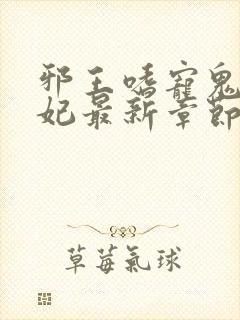 邪王嗜寵鬼
妃最新章節
草莓氣球